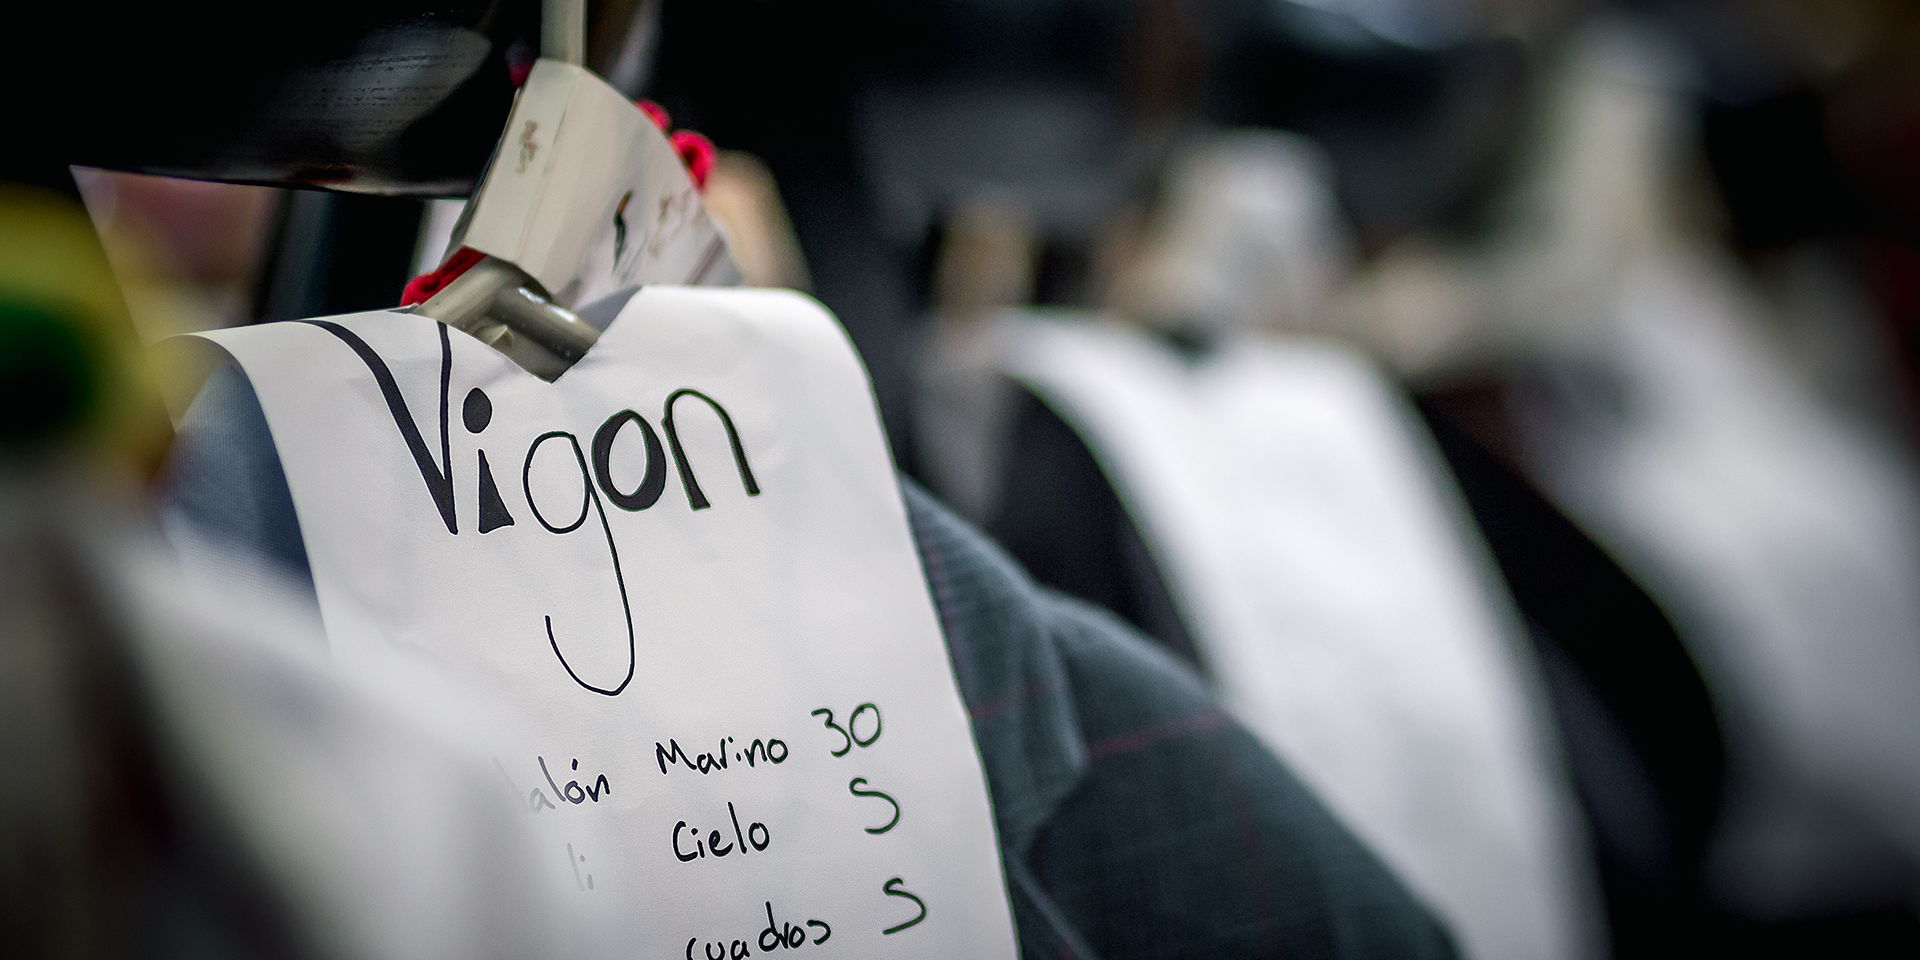 Vigon
alón Marino 30
li Cielo S
cuadros S